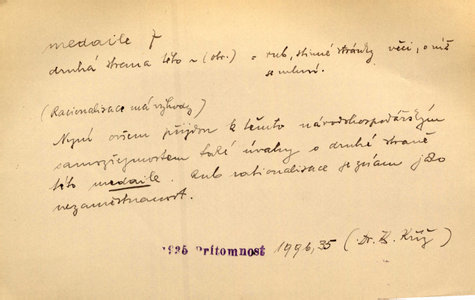 medaile f
druhá strana této ~ (obr.) = rub, stinné stránky věci, o níž
se mluví.
(Racionalisace má výhody)
Nyní ovšem přijdou k těmto národohospodářským
samozřejmostem také úvahy o druhé straně
této medaile. Rub rationalisace je znám jako
nezaměstnanost.
1935 Přítomnost 1996,35 (Dr. B. Kříž)